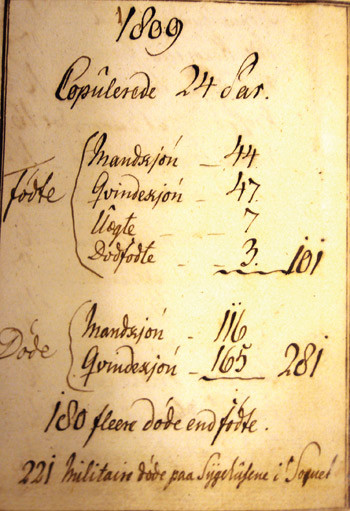 1809
Copulerede 24 Par.
Mandkjøn — 44
Qvindekjøn — 47.
Födte
Uægte — 7
Dödfödte — 3. 101
Mandkjøn — 116
Döde
Qvindekjøn — 165 281
180 fleere döde end födte.
221 Militaire döde paa Sygehusene i Sognet